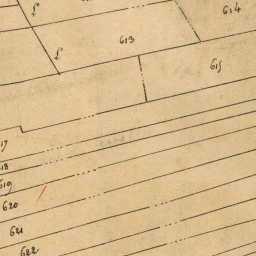 614
613
615
17
18
619
620
621
622